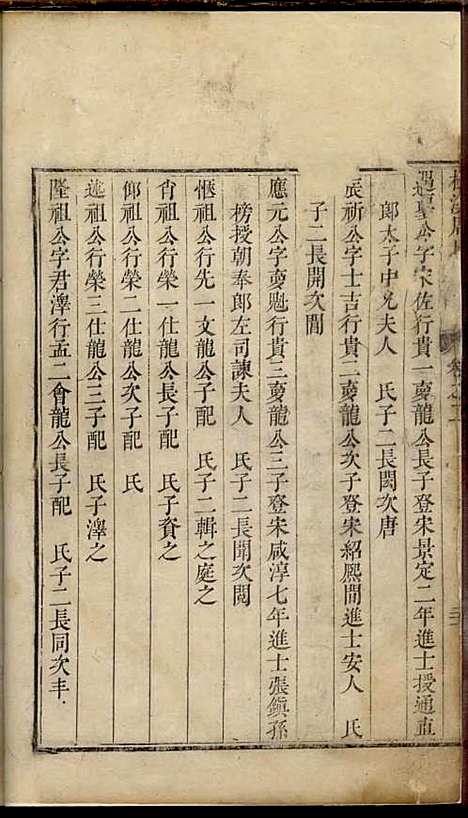 遇聖公字宋佐行貴一夔龍公長子登宋景定二年進士授通直
郎太子中允夫人　氏子二長閎次唐
辰祈公字士吉行貴二夔龍公次子登宋紹熙間進士安人　氏
子二長開次閶
應元公字夔魁行貴三夔龍公三子登宋咸淳七年進士張鎮孫
榜授朝奉郎左司諫夫人　氏子二長聞次閱
愜祖公行先一文龍公子配　氏子二輯之庭之
肖祖公行榮一仕龍公長子配　氏子賚之
仰祖公行榮二仕龍公次子配　氏
蓮祖公行榮三仕龍公三子配　氏子澤之
隆祖公字君澤行孟二會龍公長子配　氏子二長同次丰